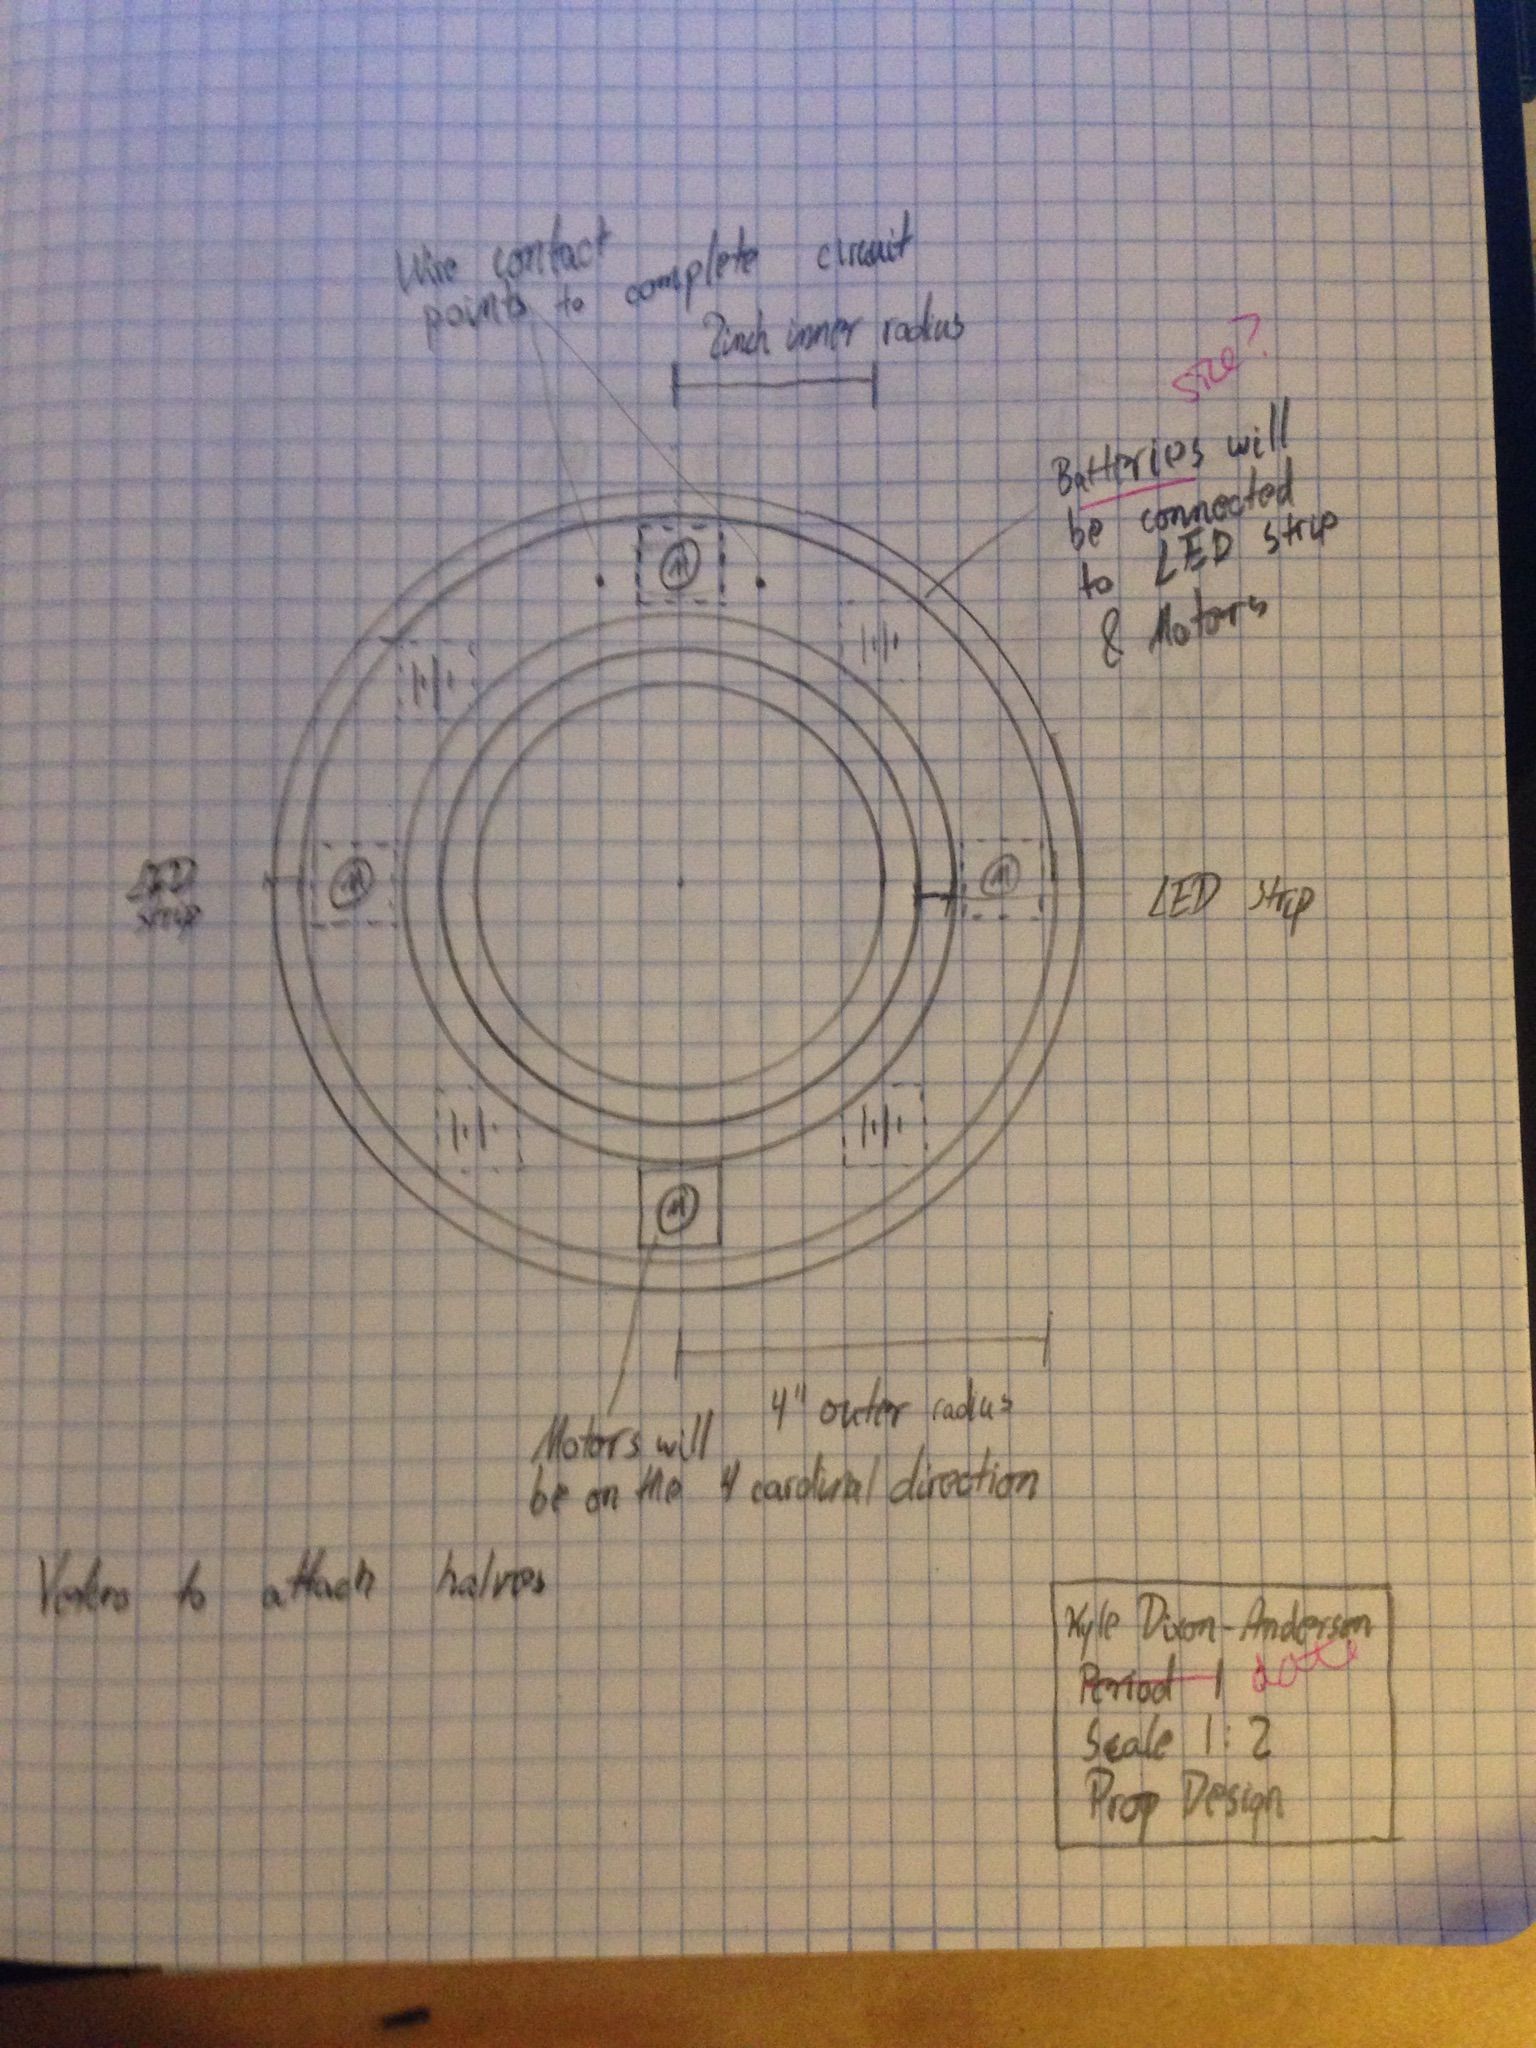 Wire contact
points to complete circuit
2inch inner radius
size?
Batteries will
be connected
to LED strip
& Motors
M
M
LED
strip
M
LED strip
M
4" outer radius
Motors will
be on the 4 cardinal direction
to attach halves
Kyle Dixon-Anderson
Period 1 date
Scale 1:2
Prop Design